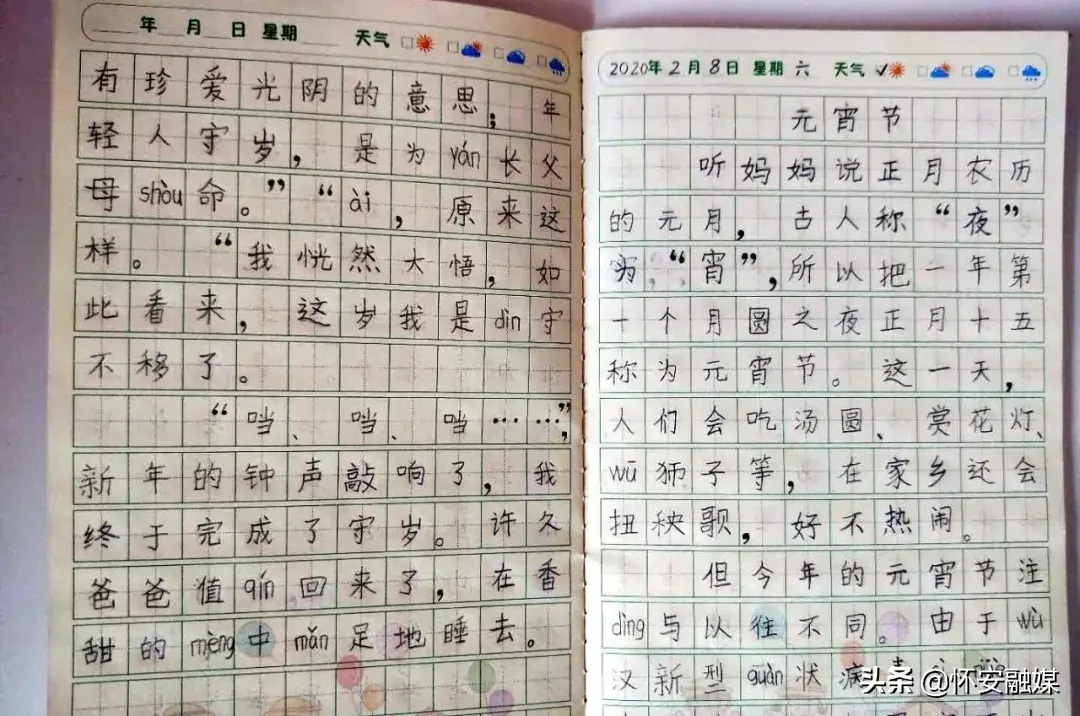 年 月 日 星期 天气
有珍爱光阴的意思；年
轻人守岁，是为yán长父
母shòu命。”“ài，原来这
样。“我恍然大悟，如
此看来，这岁我是dìn守
不移了。
“当、当、当……”，
新年的钟声敲响了，我
终于完成了守岁。许久
爸爸值qín回来了，在香
甜的mèng中mǎn足地睡去。
2020年2月8日 星期六 天气 ✓
元宵节
听妈妈说正月农历
的元月，古人称“夜”
为“宵”，所以把一年第
一个月圆之夜正月十五
称为元宵节。这一天，
人们会吃汤圆、赏花灯、
wǔ狮子等，在家乡还会
扭秧歌，好不热闹。
但今年的元宵节注
dìng与以往不同。由于wǔ
汉新型guàn状病
头条 @怀安融媒